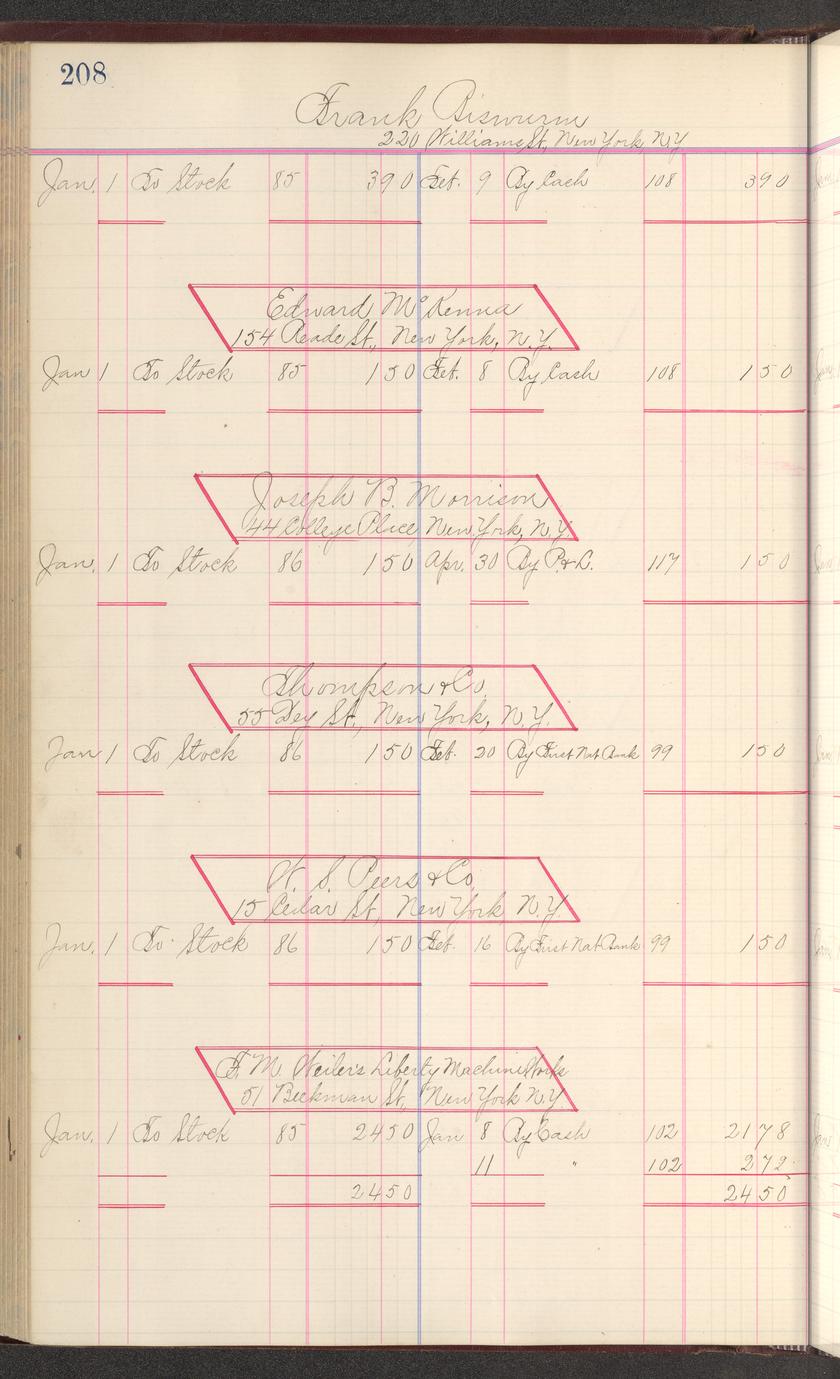 208
Frank Biswurm
220 Williams St, New York, N.Y
Jan. 1 To Stock 85 3 9 0 Feb. 9 By Cash 108 3 9 0
Edward McKenna
154 Reade St., New York, N.Y.
Jan 1 To Stock 85 1 5 0 Feb. 8 By Cash 108 1 5 0
Joseph B. Morrison
44 College Place New York, N.Y.
Jan. 1 To Stock 86 1 5 0 Apr. 30 By P. & L. 117 1 5 0
Thompson & Co.
55 Dey St., New York, N.Y.
Jan 1 To Stock 86 1 5 0 Feb. 20 By First Nat Bank 99 1 5 0
W. S. Peers & Co.
15 Cedar St, New York, N.Y
Jan. 1 To Stock 86 1 5 0 Feb. 16 By First Nat Bank 99 1 5 0
F. M. Weiler's Liberty Machine Works
51 Beekman St, New York N.Y.
Jan. 1 To Stock 85 2 4 5 0 Jan 8 By Cash 102 2 1 7 8
11 " 102 2 7 2
2 4 5 0 2 4 5 0